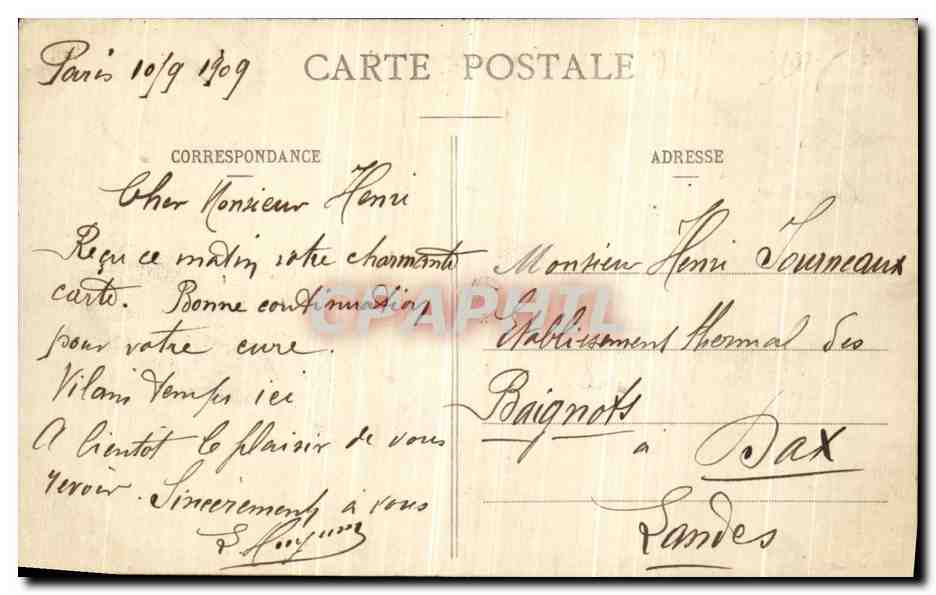 Paris 10/9 1909
CARTE POSTALE
CORRESPONDANCE
Cher Monsieur Henri
Reçu ce matin votre charmante
carte. Bonne continuation
pour votre cure.
Vilain temps ici
A bientôt le plaisir de vous
revoir. Sincèrement à vous
ADRESSE
Monsieur Henri Journeaux
Etablissement thermal des
Baignots
à Dax
Landes
CPAPHIL